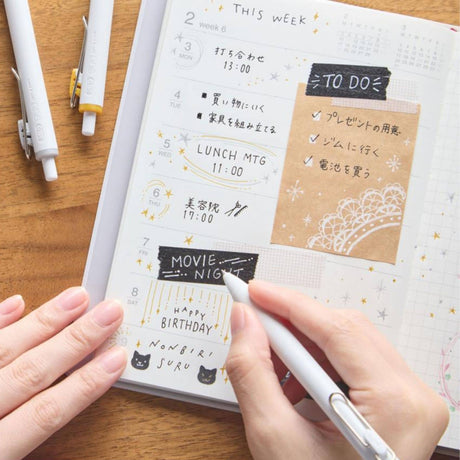 THIS WEEK
2 week 6
3 MON
打ち合わせ
13:00
4 TUE
買い物にいく
家具を組み立てる
5 WED
LUNCH MTG
11:00
6 THU
美容院
17:00
7 FRI
MOVIE
NIGHT
8 SAT
HAPPY
BIRTHDAY
NONBIRI
SURU
TO DO
プレゼントの用意
ジムに行く
電池を買う